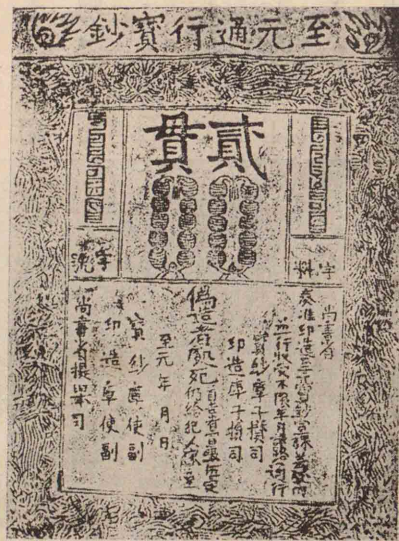 至元通行寶鈔
貳貫
字料
字號
尚書省
奏准印造至元寶鈔宣課差役內
並行收受不限年月諸路通行
寶鈔庫子攢司
印造庫子攢司
偽造者處死首告者賞銀伍定
仍給犯人家產
至元 年 月 日
寶鈔庫使副
印造庫使副
尚書省提舉司